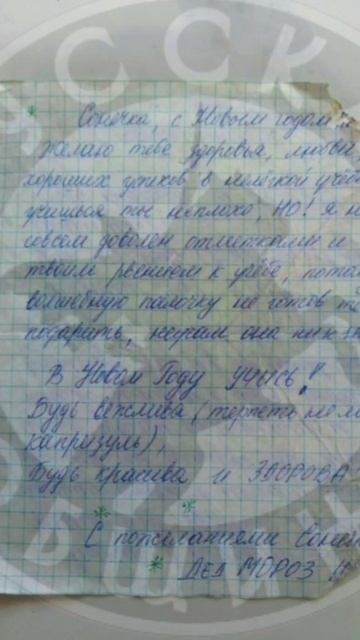 Сонечка, с Новым годом!
желаю тебе здоровья, любви
хороших успехов в нелёгкой учёбе
учишься ты неплохо, НО! я не
совсем доволен отметками и
твоим рвением к учёбе, пото
волшебную палочку не готов те
подарить, неграм она ни к
В Новом Году УЧИСЬ!
Будь вежлива (терпеть не мо
капризуль),
Будь красива и ЗДОРОВА
С пожеланиями
ДЕД МОРОЗ
СССР
ОБЩИЙ